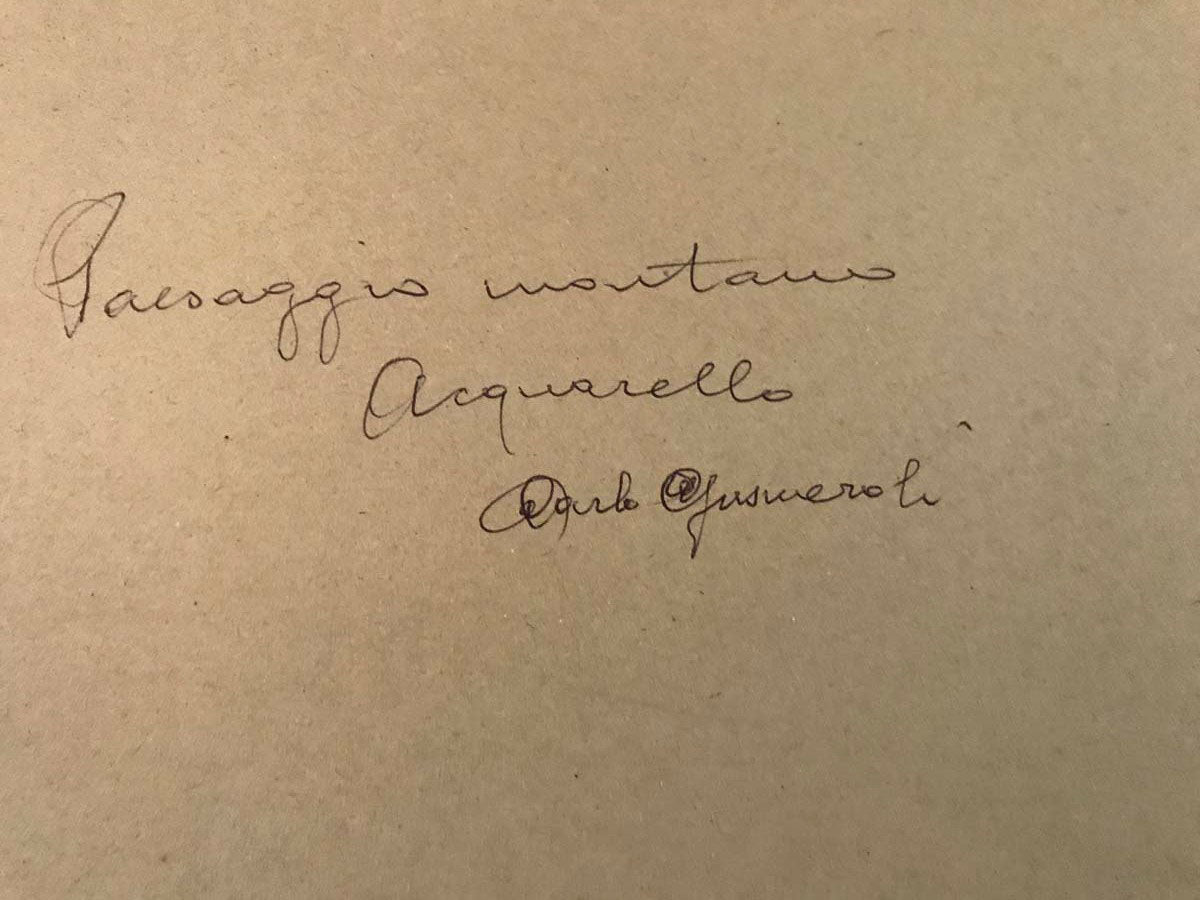 Paesaggio montano
Acquarello
Carlo Gusmeroli